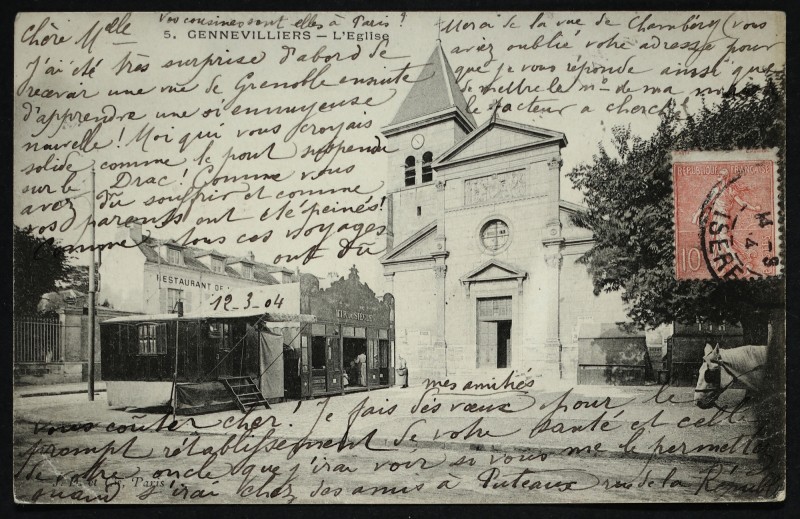 Vos cousines sont elles à Paris ?
5. GENNEVILLIERS — L'Eglise
Chère Melle
J'ai été très surprise d'abord de
recevoir une vue de Grenoble ensuite
d'apprendre une si ennuyeuse
nouvelle ! Moi qui vous croyais
solide comme le pont suspendu
sur le Drac ! Comme vous
avez dû souffrir et comme
vos parents ont été peinés !
Comme tous ces voyages
ont dû
Merci de la vue de Chambéry (vous
aviez oublié votre adresse pour
que je vous réponde ainsi que
de mettre le no de ma
le facteur a cherché
REPUBLIQUE FRANÇAISE
10
ISERE
RESTAURANT DE
12-3-04
mes amitiés
vous coûter cher ! Je fais des vœux pour le
prompt rétablissement de votre santé et celle
de votre oncle que j'irai voir si vous me le permettez
quand j'irai chez des amis à Puteaux rue de la République
Paris